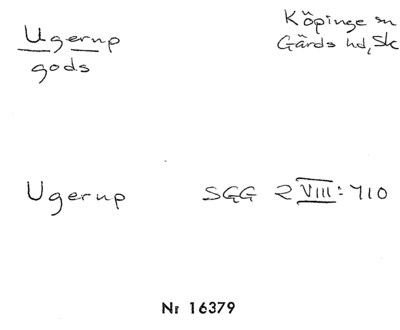 Ugerup
gods
Köpinge sn
Gärds hd, Sk
Ugerup SGG 2 VIII: 710
Nr 16379